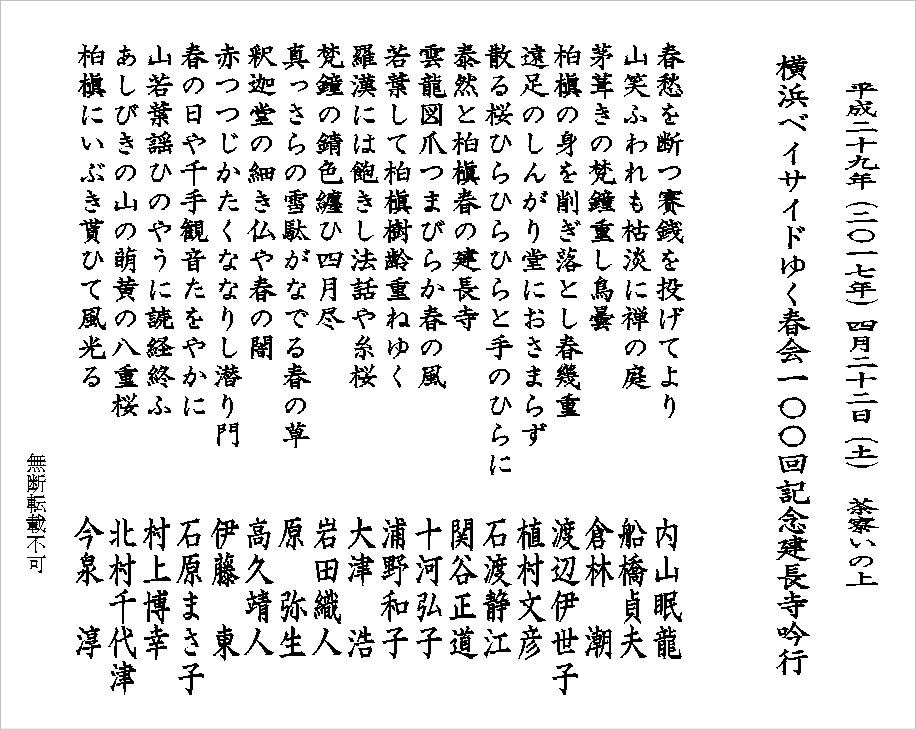 平成二十九年（二〇一七年）四月二十二日（土）　茶寮いの上
横浜ベイサイドゆく春会一〇〇回記念建長寺吟行
春愁を断つ賽銭を投げてより　内山眠龍
山笑ふわれも枯淡に禅の庭　船橋貞夫
茅葺きの梵鐘重し鳥曇　倉林　潮
柏槇の身を削ぎ落とし春幾重　渡辺伊世子
遠足のしんがり堂におさまらず　植村文彦
散る桜ひらひらひらと手のひらに　石渡静江
泰然と柏槇春の建長寺　関谷正道
雲龍図爪つまびらか春の風　十河弘子
若葉して柏槇樹齢重ねゆく　浦野和子
羅漢には飽きし法話や糸桜　大津　浩
梵鐘の錆色纏ひ四月尽　岩田織人
真っさらの雪駄がなでる春の草　原　弥生
釈迦堂の細き仏や春の闇　高久靖人
赤つつじかたくななりし潜り門　伊藤　東
春の日や千手観音たをやかに　石原まさ子
山若葉謡ひのやうに読経終ふ　村上博幸
あしびきの山の萌黄の八重桜　北村千代津
柏槇にいぶき貰ひて風光る　今泉　淳
無断転載不可